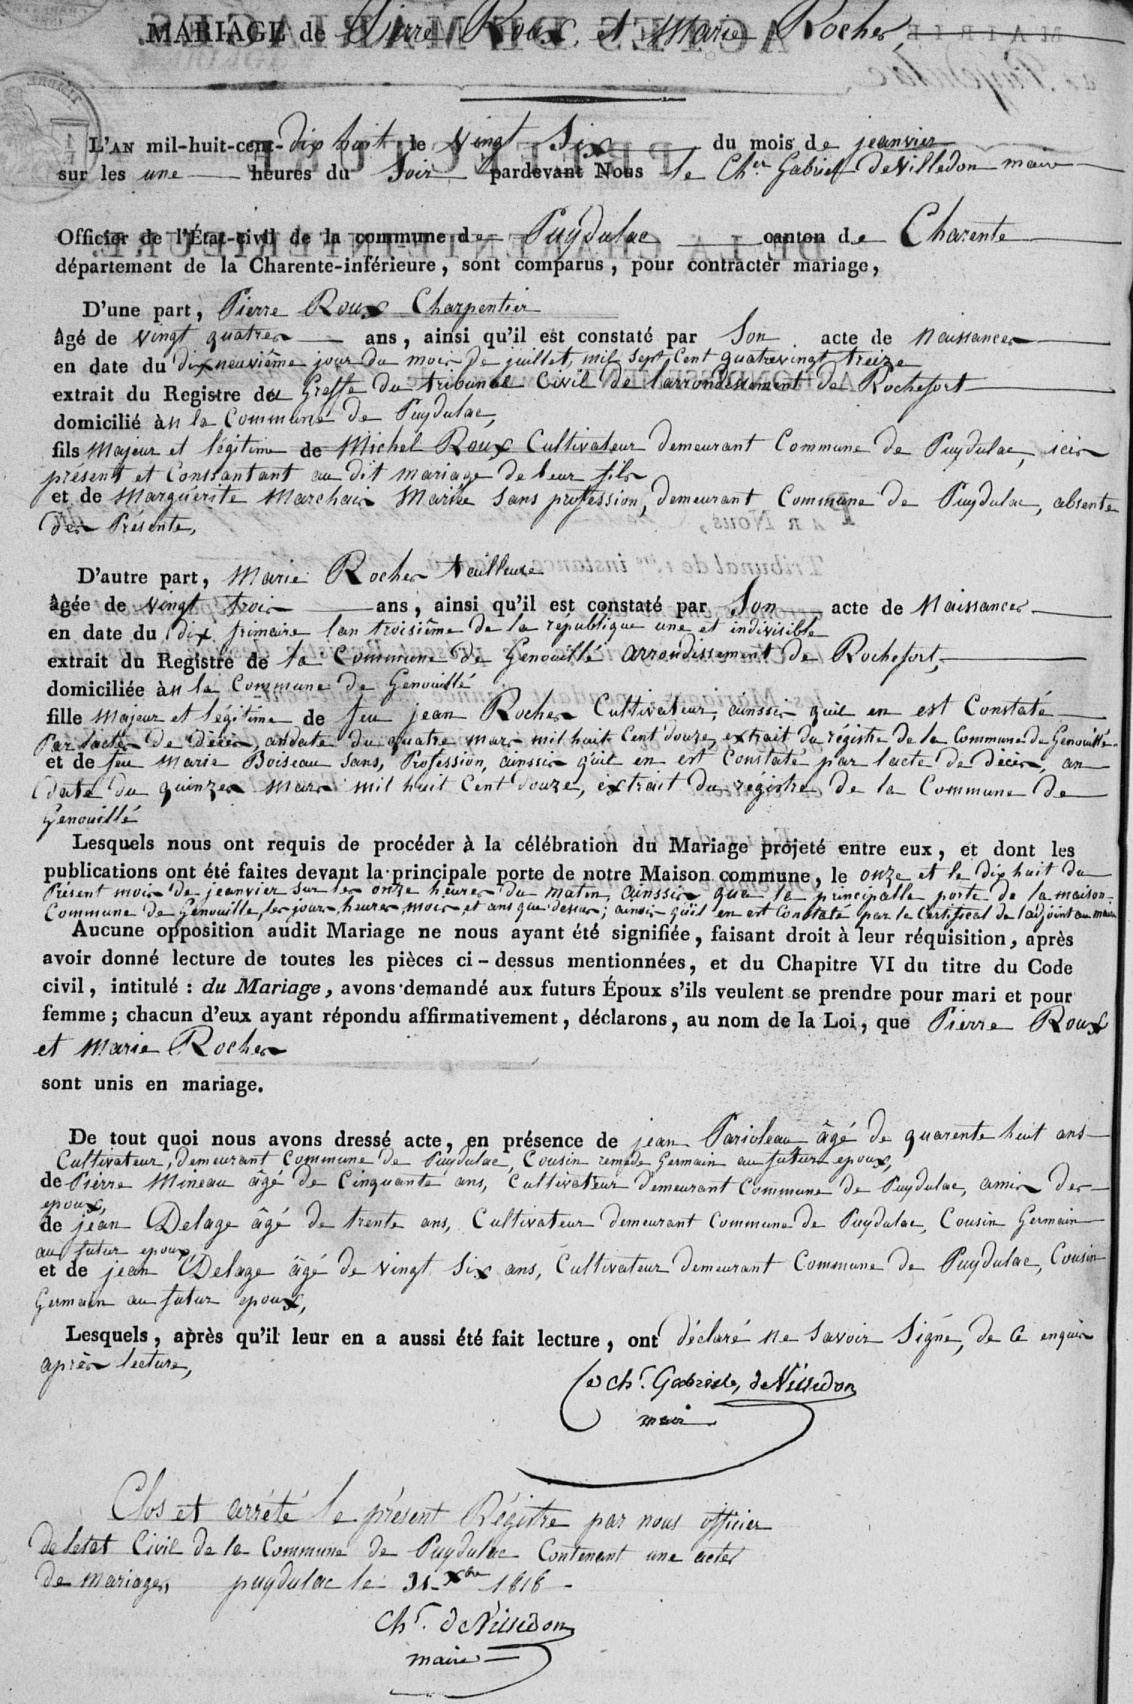 MARIAGE de Pierre Roux et Marie Rocher
L'AN mil-huit-cent-dix huit le vingt Six du mois de jeanvier
sur les une heures du Soir pardevant Nous le Ch.er Gabriel deVilledon maire
Officier de l'État-civil de la commune de Puydulac canton de Charente
département de la Charente-inférieure, sont comparus, pour contracter mariage,
D'une part, Pierre Roux Charpentier
âgé de vingt quatre ans, ainsi qu'il est constaté par Son acte de Naissance
en date du dixneuvième jour du mois de juillet, mil sept Cent quatrevingt treize
extrait du Registre du Greffe du tribunal Civil de l'arrondissement de Rochefort
domicilié à la Commune de Puydulac,
fils Majeur et légitime de Michel Roux Cultivateur demeurant Commune de Puydulac, ici
présent et Consantant au dit mariage de leur fils
et de Marguerite Marchais Mariée Sans profession, demeurant Commune de Puydulac, absente
des Présente,
D'autre part, Marie Rocher tailleuse
âgée de vingt trois ans, ainsi qu'il est constaté par Son acte de Naissance
en date du dix frimaire l'an troisième de la république une et indivisible
extrait du Registre de la Commune de Genouillé arrondissement de Rochefort,
domiciliée à la Commune de Genouillé
fille Majeur et légitime de feu jean Rocher Cultivateur, ainssi quil en est Constaté
Par l'acte de décès, andate du quatre mars mil huit Cent douze, extrait du régistre de la Commune de Genouillé
et de feu Marie Boiseau Sans, Profession, ainssi quil en est Constaté par l'acte de décès, an
date du quinze Mars mil huit Cent douze, extrait du régistre de la Commune de
Genouillé
Lesquels nous ont requis de procéder à la célébration du Mariage projeté entre eux, et dont les
publications ont été faites devant la principale porte de notre Maison commune, le onze et le dix huit du
Présent mois de jeanvier sur les onze heures du matin, ainssi que la principalle porte de la maison
Commune de Genouillé, les jours, heures, mois et ans que dessus; ainsi quil en est Constaté par le Certificat de l'adjoint au maire
Aucune opposition audit Mariage ne nous ayant été signifiée, faisant droit à leur réquisition, après
avoir donné lecture de toutes les pièces ci-dessus mentionnées, et du Chapitre VI du titre du Code
civil, intitulé : du Mariage, avons demandé aux futurs Époux s'ils veulent se prendre pour mari et pour
femme; chacun d'eux ayant répondu affirmativement, déclarons, au nom de la Loi, que Pierre Roux
et Marie Rocher
sont unis en mariage.
De tout quoi nous avons dressé acte, en présence de jean Parioleau âgé de quarente huit ans
Cultivateur, demeurant Commune de Puydulac, Cousin remede Germain au futur epoux,
de Pierre Mineau âgé de Cinquante ans, Cultivateur demeurant Commune de Puydulac, amis des
epoux,
de jean Delage âgé de trente ans, Cultivateur demeurant Commune de Puydulac, Cousin Germain
au futur epoux
et de jean Delage âgé de vingt Six ans, Cultivateur demeurant Commune de Puydulac, Cousin
Germain au futur epoux,
Lesquels, après qu'il leur en a aussi été fait lecture, ont déclaré ne Savoir Signé, de Ce enquis
après lecture,
Le ch.r Gabriele, deVilledon
mair
Clos et arrété le présent Régistre par nous officier
de letat Civil de la Commune de Puydulac Contenant une acte
de mariage, puydulac le 31 Xbre 1818
Ch.r deVilledon
maire